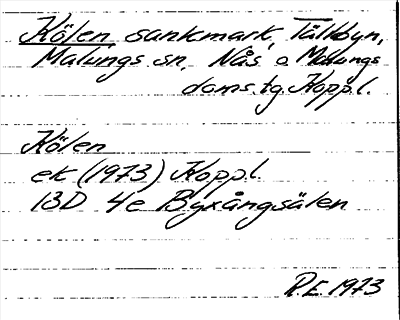 Kölen sankmark, Tällbyn,
Malungs sn, Nås o Malungs
doms.tg. Koppl.
Kölen
ek (1973) Koppl.
13D 4e Byxångsälen
R.E. 1973